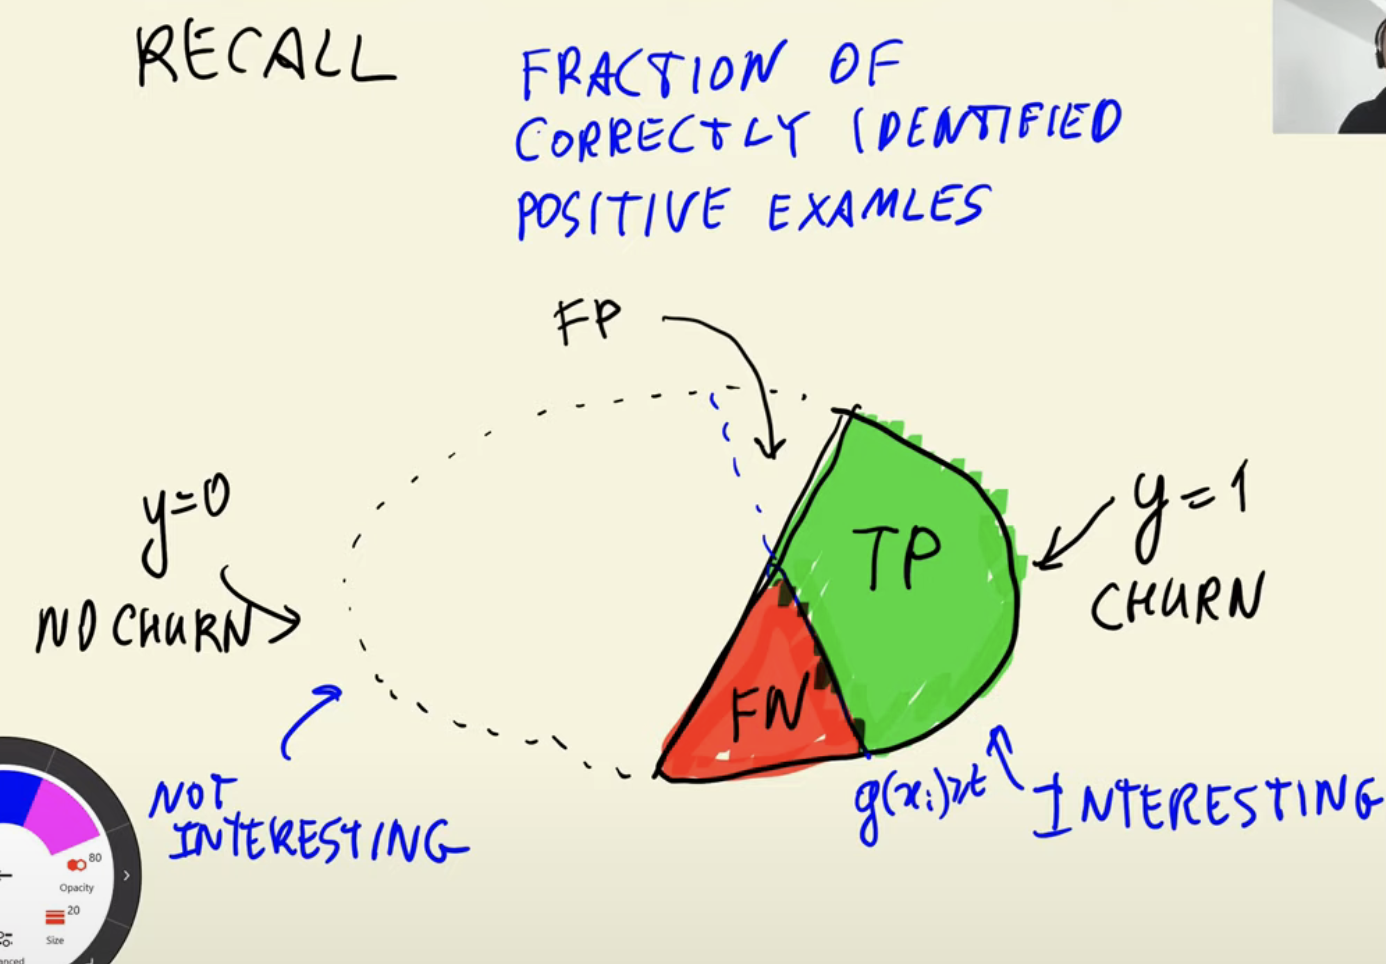 RECALL
FRACTION OF
CORRECTLY IDENTIFIED
POSITIVE EXAMLES
FP
y=0
NO CHURN
TP
y=1
CHURN
FN
NOT
INTERESTING
g(xᵢ)≥t
INTERESTING
80
Opacity
20
Size
anced